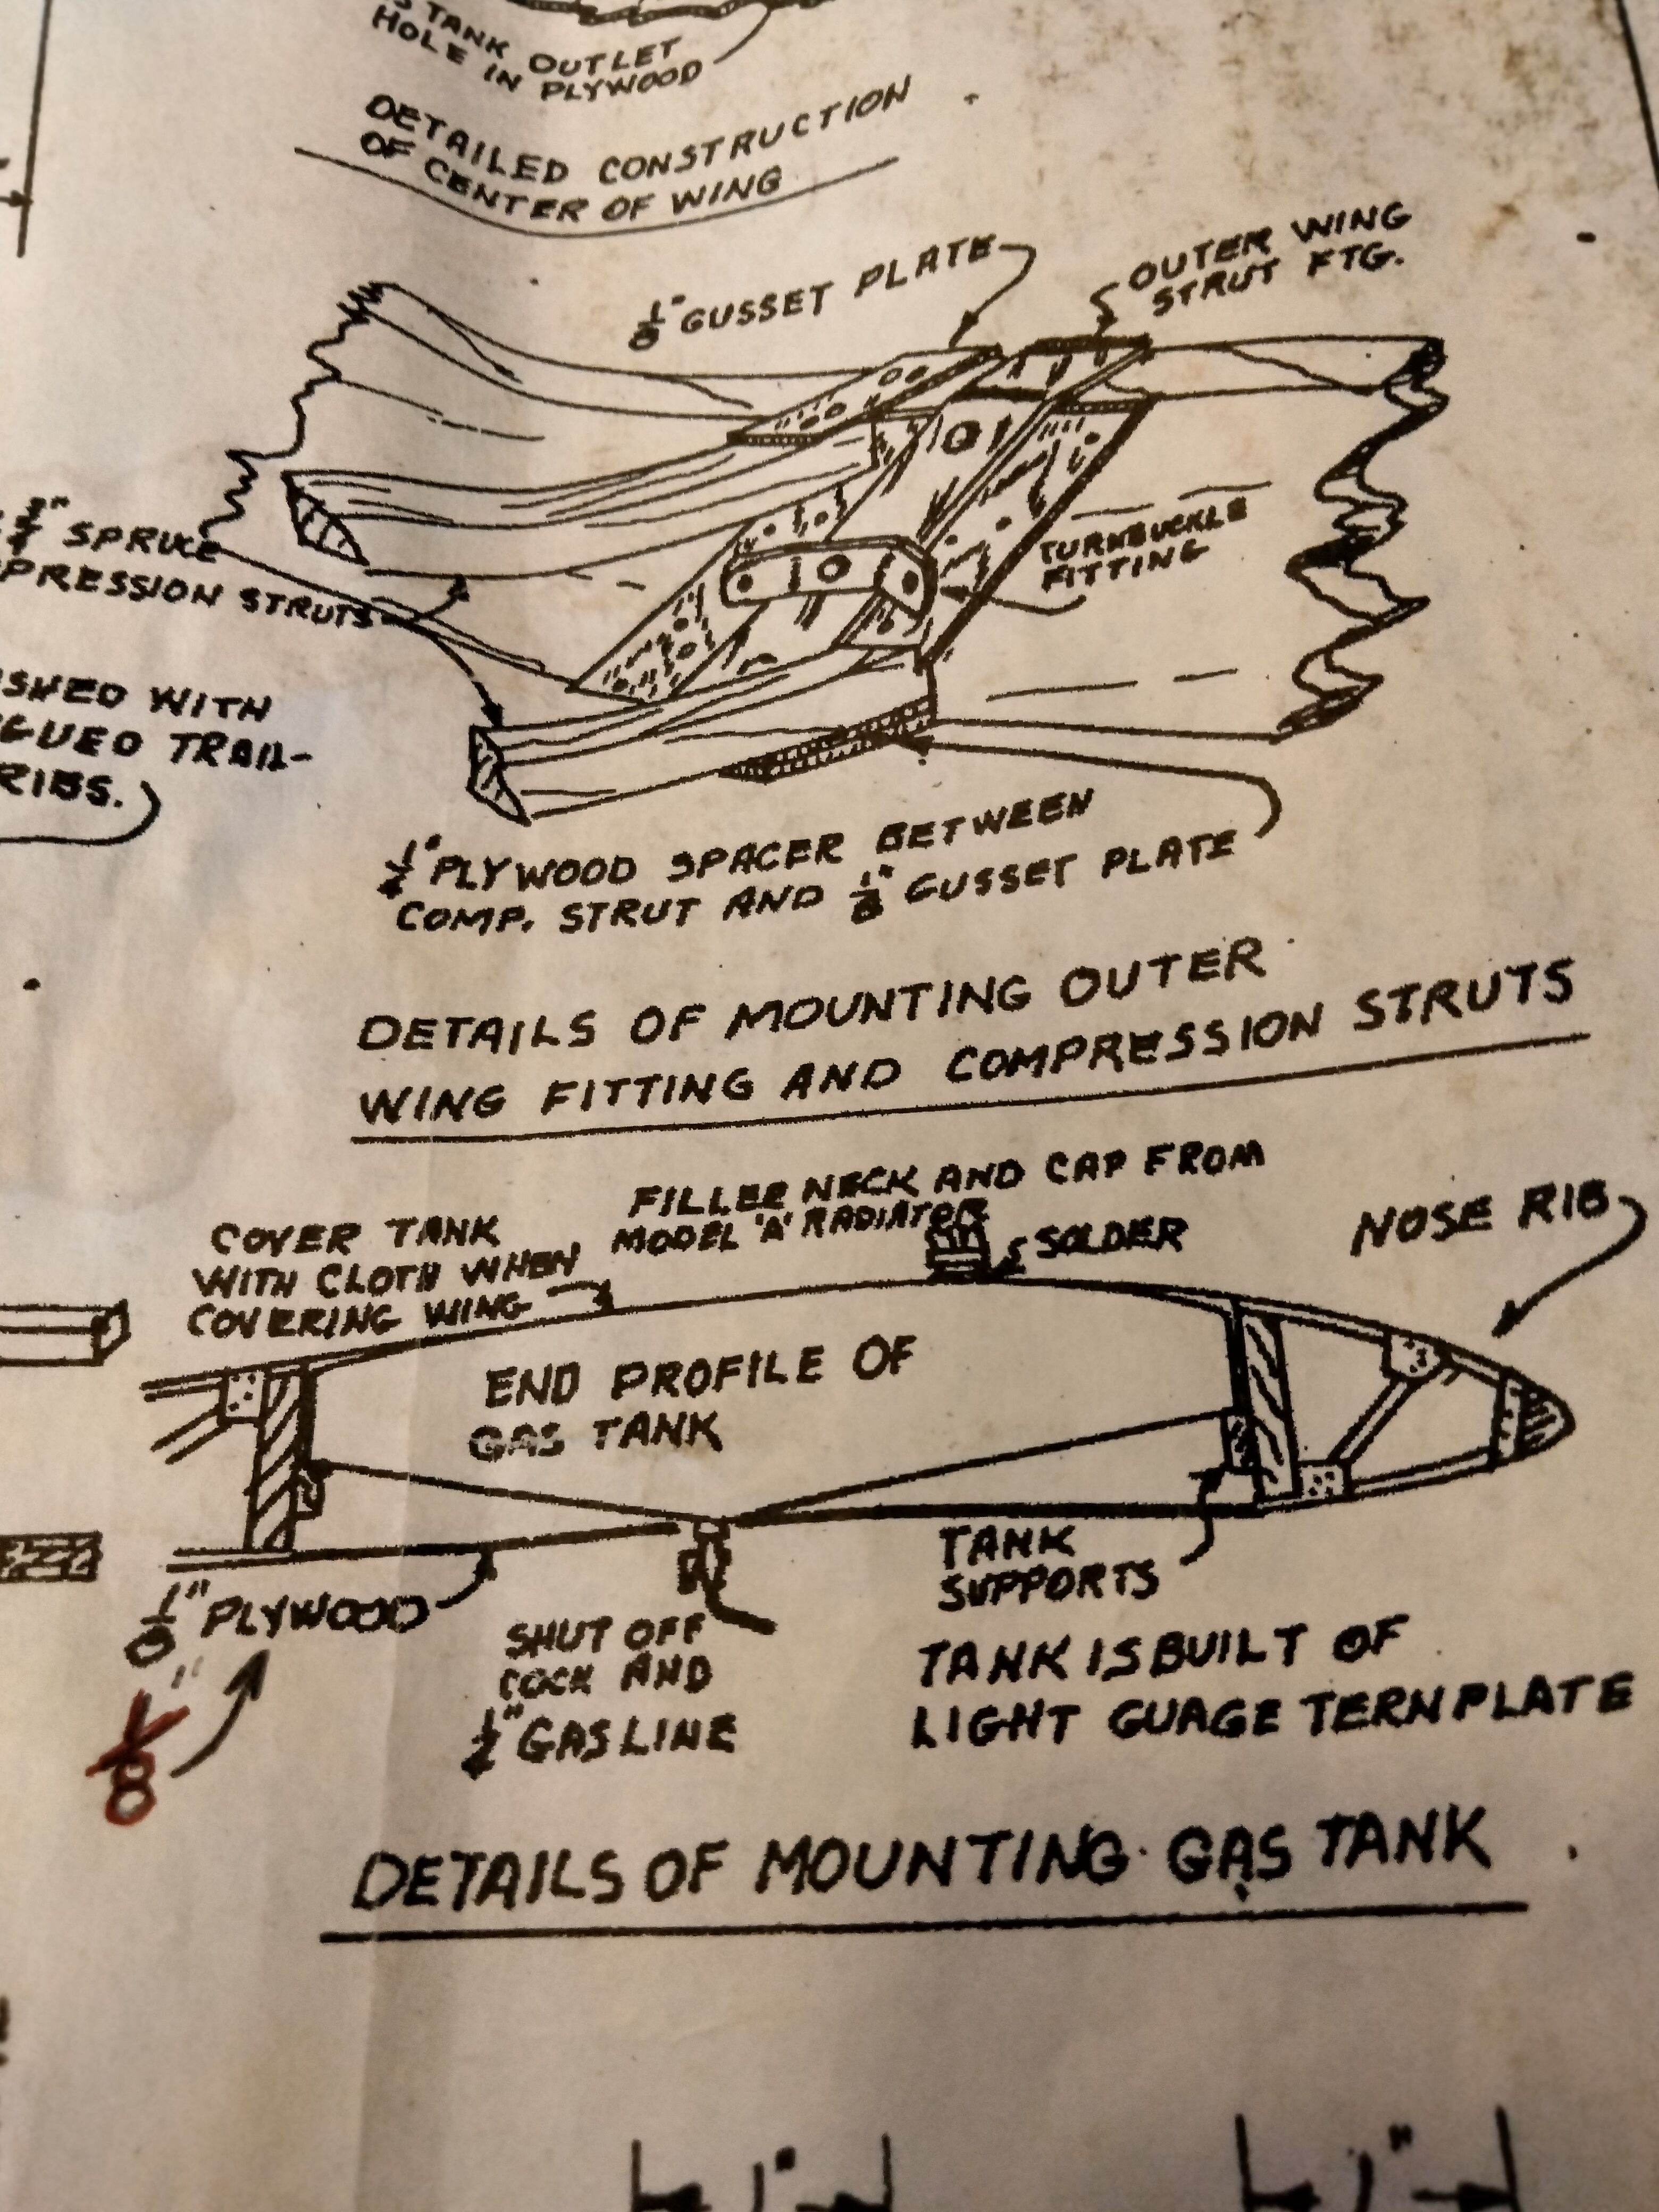 TANK OUTLET
HOLE IN PLYWOOD
DETAILED CONSTRUCTION
OF CENTER OF WING
1/8" GUSSET PLATE
OUTER WING
STRUT FTG.
SPRUCE
PRESSION STRUTS
TURNBUCKLE
FITTING
SHED WITH
GUED TRAIL-
RIBS.
PLYWOOD SPACER BETWEEN
COMP. STRUT AND 1/8" GUSSET PLATE
DETAILS OF MOUNTING OUTER
WING FITTING AND COMPRESSION STRUTS
COVER TANK
WITH CLOTH WHEN
COVERING WING
FILLER NECK AND CAP FROM
MODEL 'A' RADIATOR
SOLDER
NOSE RIB
END PROFILE OF
GAS TANK
1/8" PLYWOOD
1/8"
SHUT OFF
COCK AND
GAS LINE
TANK
SUPPORTS
TANK IS BUILT OF
LIGHT GUAGE TERNPLATE
DETAILS OF MOUNTING GAS TANK
1"
1"